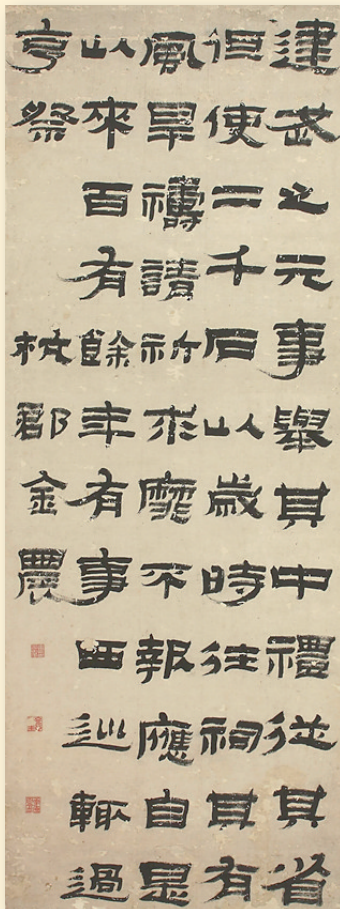 建武之元事舉其中禮從其省
但使二千石以歲時往祠其有
風旱禱請祈求靡不報應自是
以來百有餘年有事西巡輒過
享祭 杭郡金農